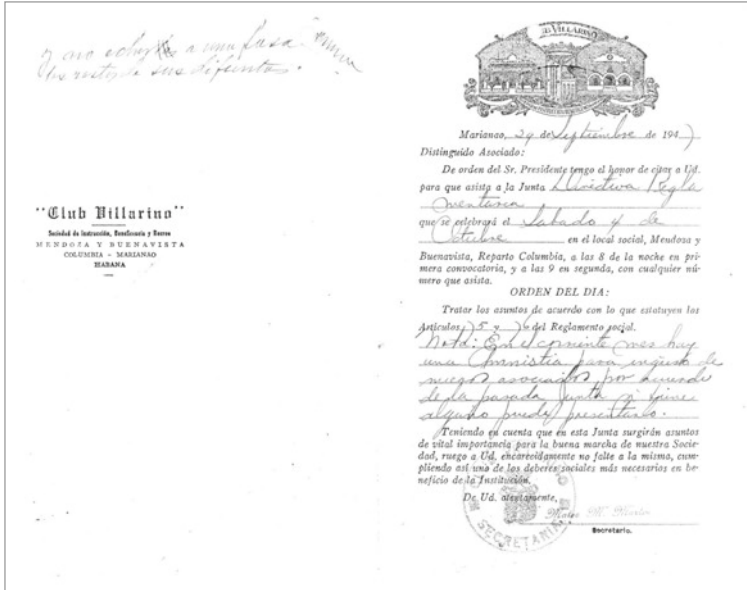 y no echarles a una fosa común
los restos de sus difuntos.
"Club Villarino"
Sociedad de Instrucción, Beneficencia y Recreo
MENDOZA Y BUENAVISTA
COLUMBIA - MARIANAO
HABANA
VILLARINO
Marianao, 29 de Septiembre de 194
Distinguido Asociado:
De orden del Sr. Presidente tengo el honor de citar a Ud.
para que asista a la Junta Directiva Regla
mentaria
que se celebrará el Sabado 4 de
Octubre en el local social, Mendoza y
Buenavista, Reparto Columbia, a las 8 de la noche en pri-
mera convocatoria, y a las 9 en segunda, con cualquier nú-
mero que asista.
ORDEN DEL DIA:
Tratar los asuntos de acuerdo con lo que estatuyen los
Artículos 75 y 76 del Reglamento social.
Nota: En el corriente mes hay
una Amnistia para ingreso de
nuevos asociados, por acuerdo
de la pasada Junta si tiene
alguno puede presentarlo.
Teniendo en cuenta que en esta Junta surgirán asuntos
de vital importancia para la buena marcha de nuestra Socie-
dad, ruego a Ud. encarecidamente no falte a la misma, cum-
pliendo así uno de los deberes sociales más necesarios en be-
neficio de la Institución.
De Ud. atentamente,
SECRETARIA
Secretario.